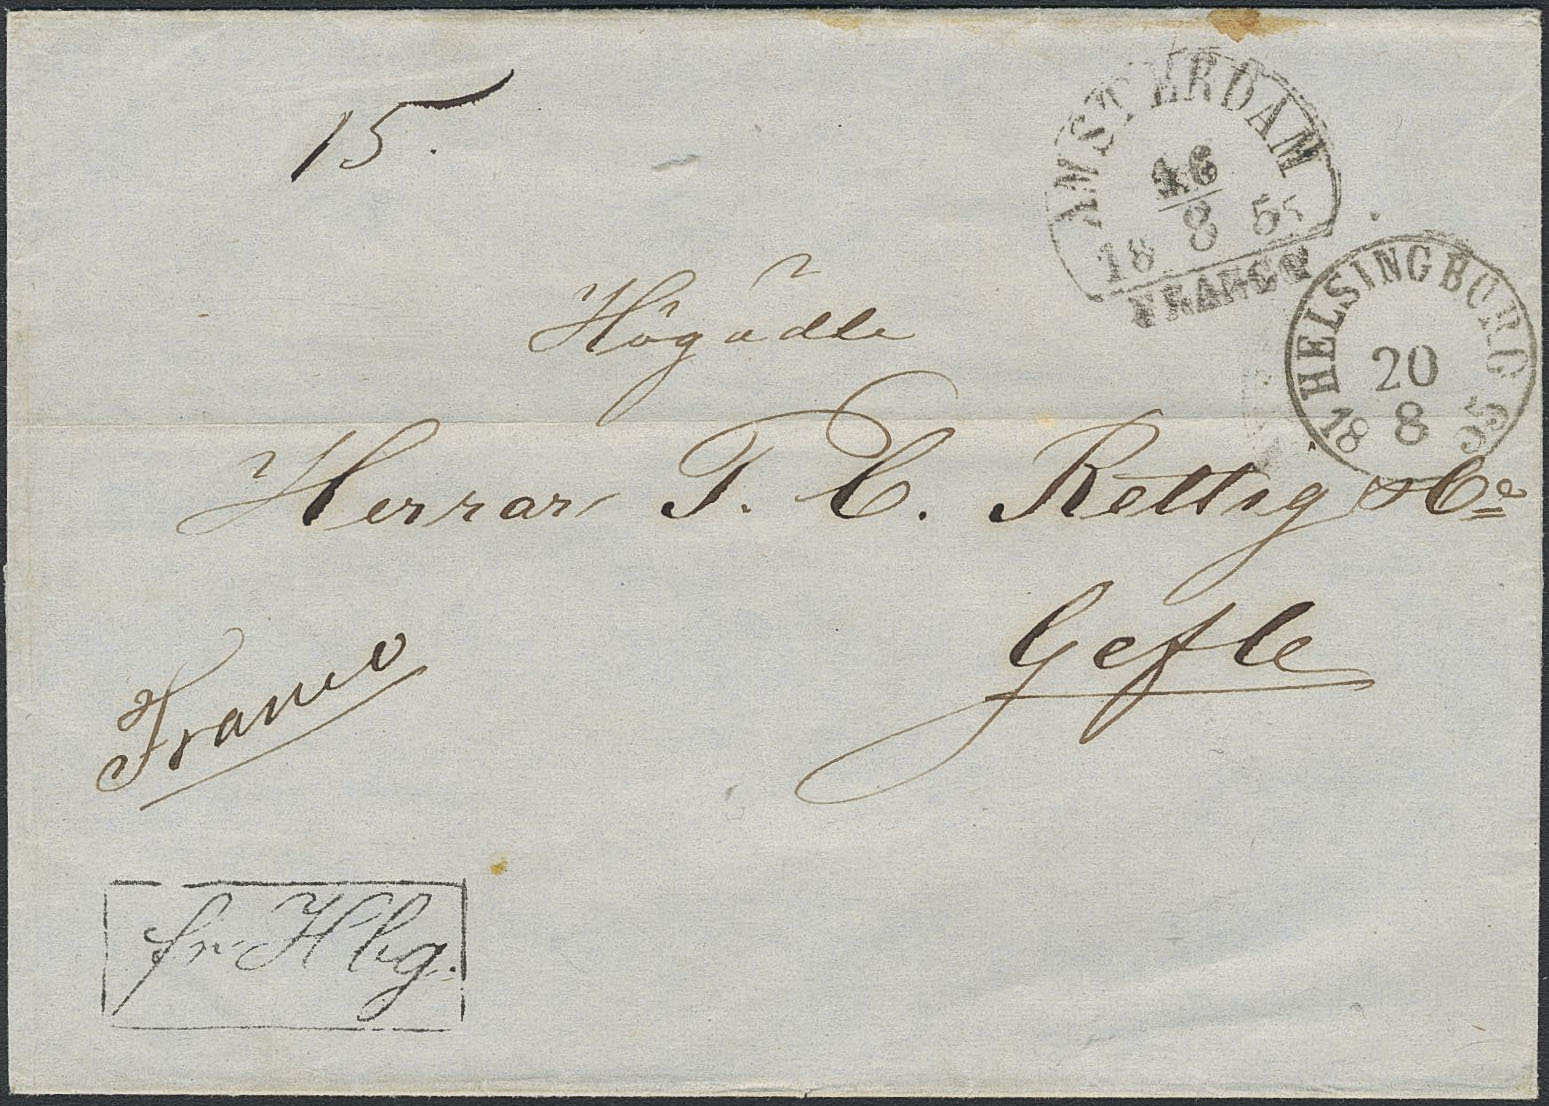 15.
AMSTERDAM
16
8
18 55
FRANCO
HELSINGBORG
20
8
18 55
Högädle
Herrar P. C. Rettig & Co
Gefle
Franco
fr. Hbg.